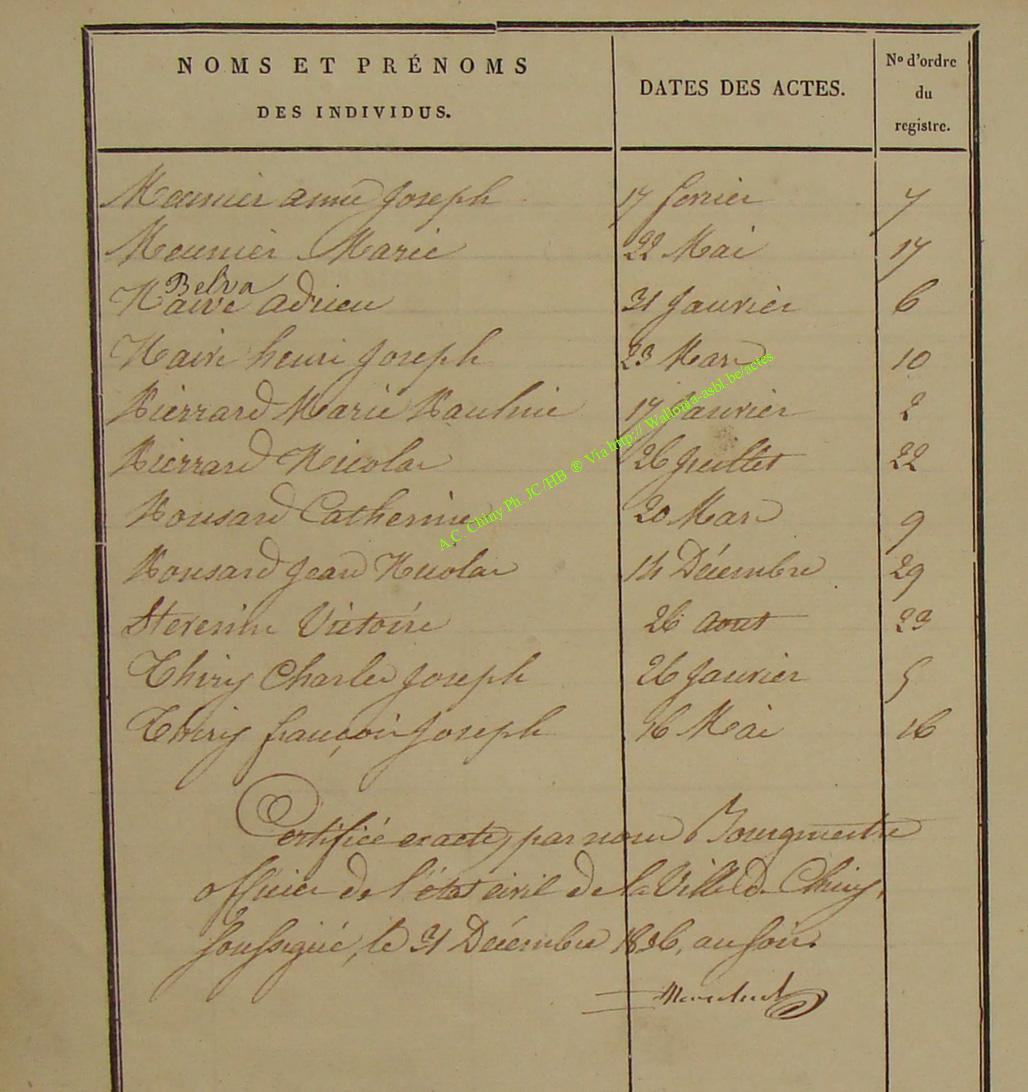 NOMS ET PRÉNOMS
DES INDIVIDUS.
DATES DES ACTES.
Nº d'ordre
du
registre.
Meunier anne Joseph 17 fevrier 7
Meunier Marie 22 Mai 17
Belva
Naive adrien 31 Janvier 6
Naive henri Joseph 23 Mars 10
Pierrard Marie Pauline 17 Janvier 2
Pierrard Nicolas 26 Juillet 22
Ponsard Catherine 20 Mars 9
Ponsard Jean Nicolas 14 Décembre 29
Stevenin Victoire 26 aout 23
Thiry Charles Joseph 26 Janvier 5
Thiry françois Joseph 16 Mai 16
Certifiée exacte, par nous Bourgmestre
officier de l'état civil de la Ville de Chiny,
soussigné, le 31 Décembre 1836, au soir.
A.C. Chiny Ph. JC/HB ® Via http:// Wallonia-asbl.be/actes